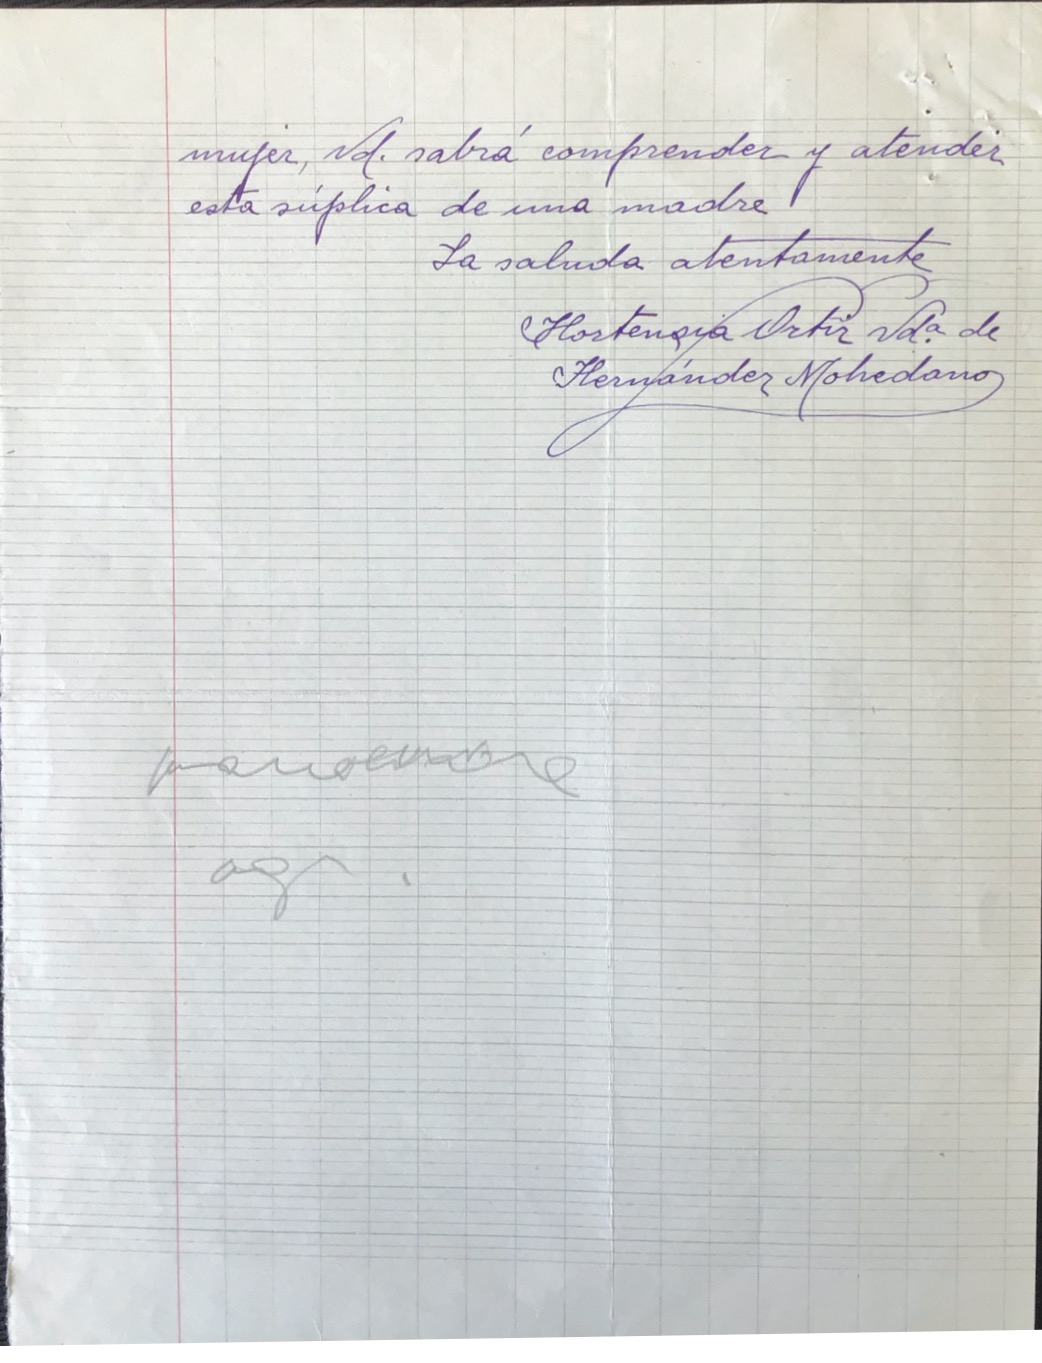 mujer, Vd. sabrá comprender y atender
esta súplica de una madre
La saluda atentamente
Hortensia Ortiz Vda. de
Hernández Mohedano